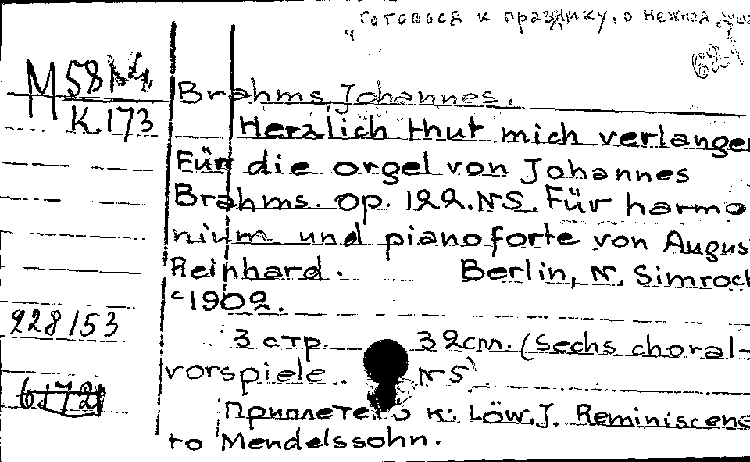 "готовься к празднику, о нежная
M58
K.173
Brahms, Johannes.
Herzlich thut mich verlangen
Für die orgel von Johannes
Brahms. op. 122. N5. Für harmo
nium und pianoforte von Augus
Reinhard. Berlin, N. Simrock
c1902.
228153
3 стр. 32 cm. (Sechs choral-
vorspiele. N5)
6172
Приплетено к: Löw, J. Reminiscens
to Mendelssohn.